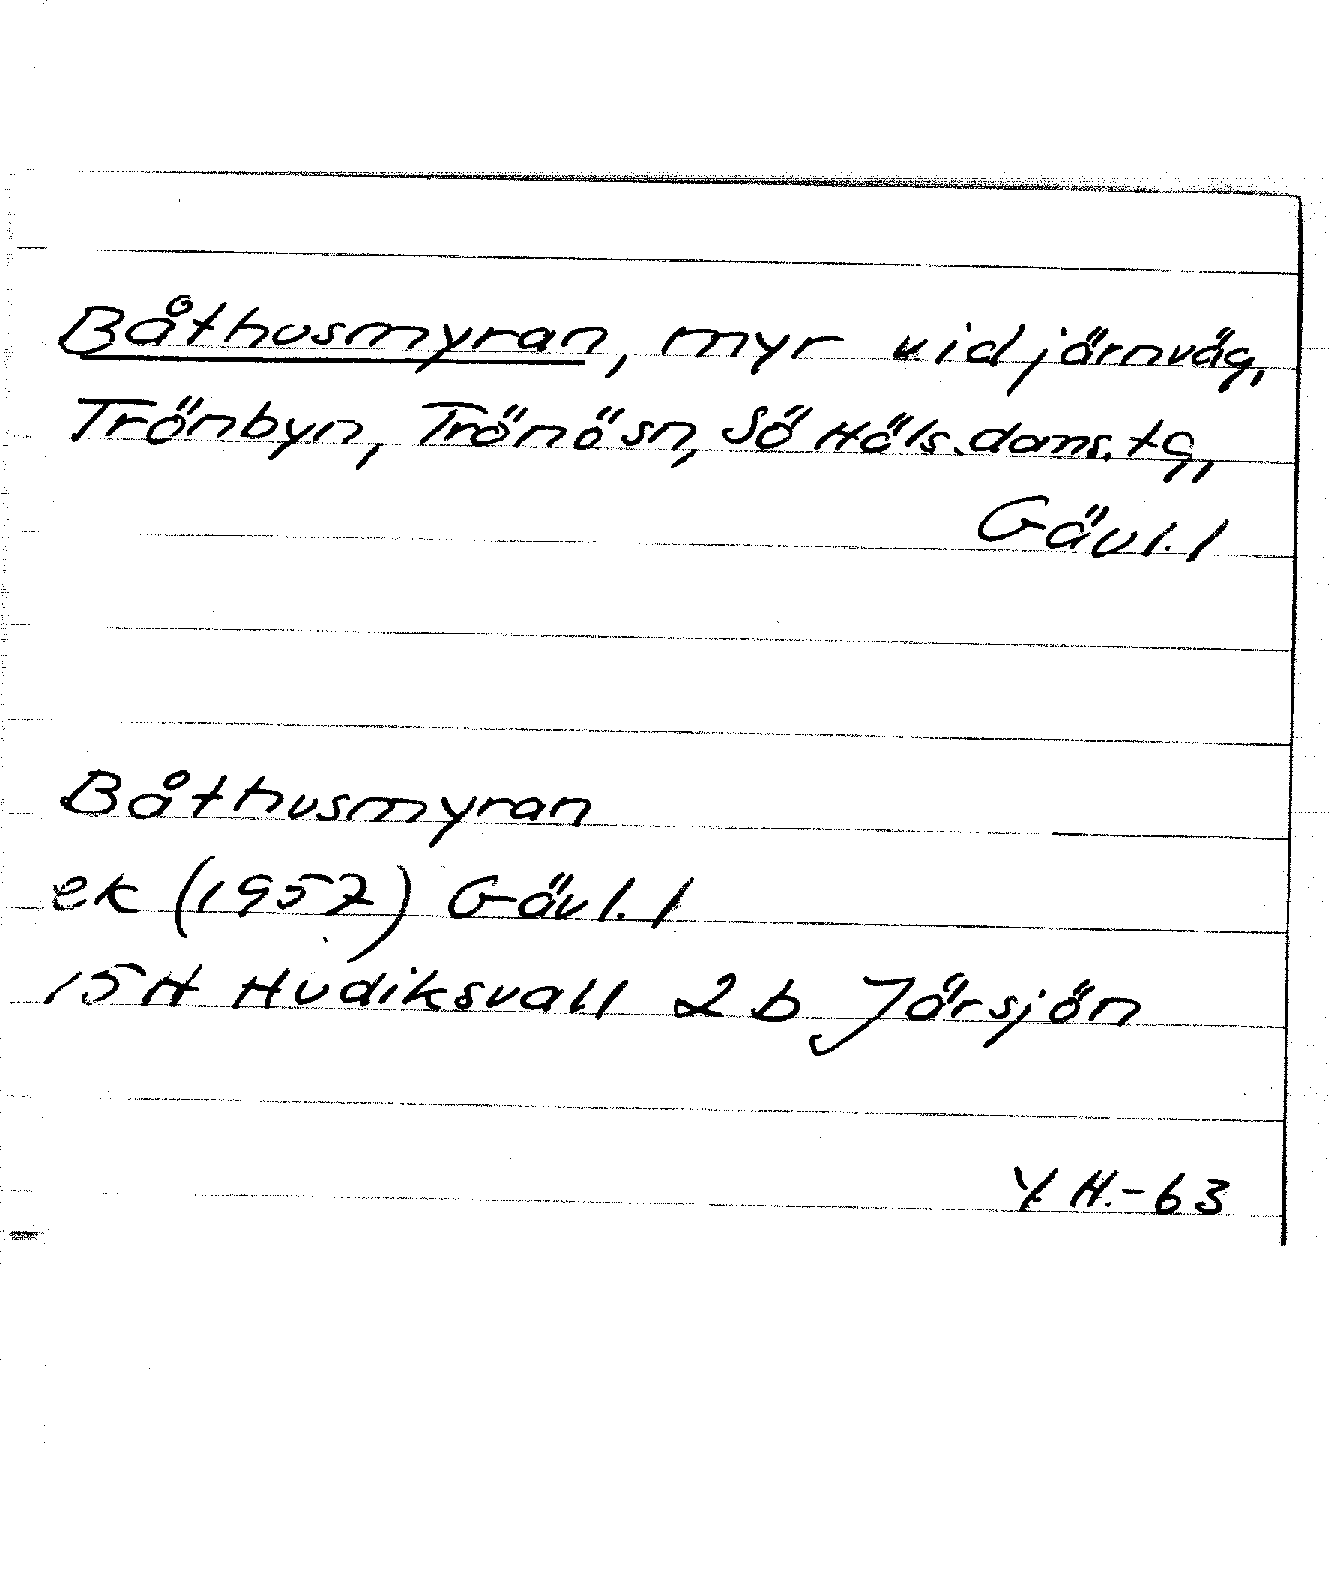 Båthusmyran, myr vid järnväg,
Trönbyn, Trönö sn, Sö Häls. doms. tg,
Gävl. l
Båthusmyran
ek (1957) Gävl. l
15H Hudiksvall 2 b Järsjön
Y. H. - 63